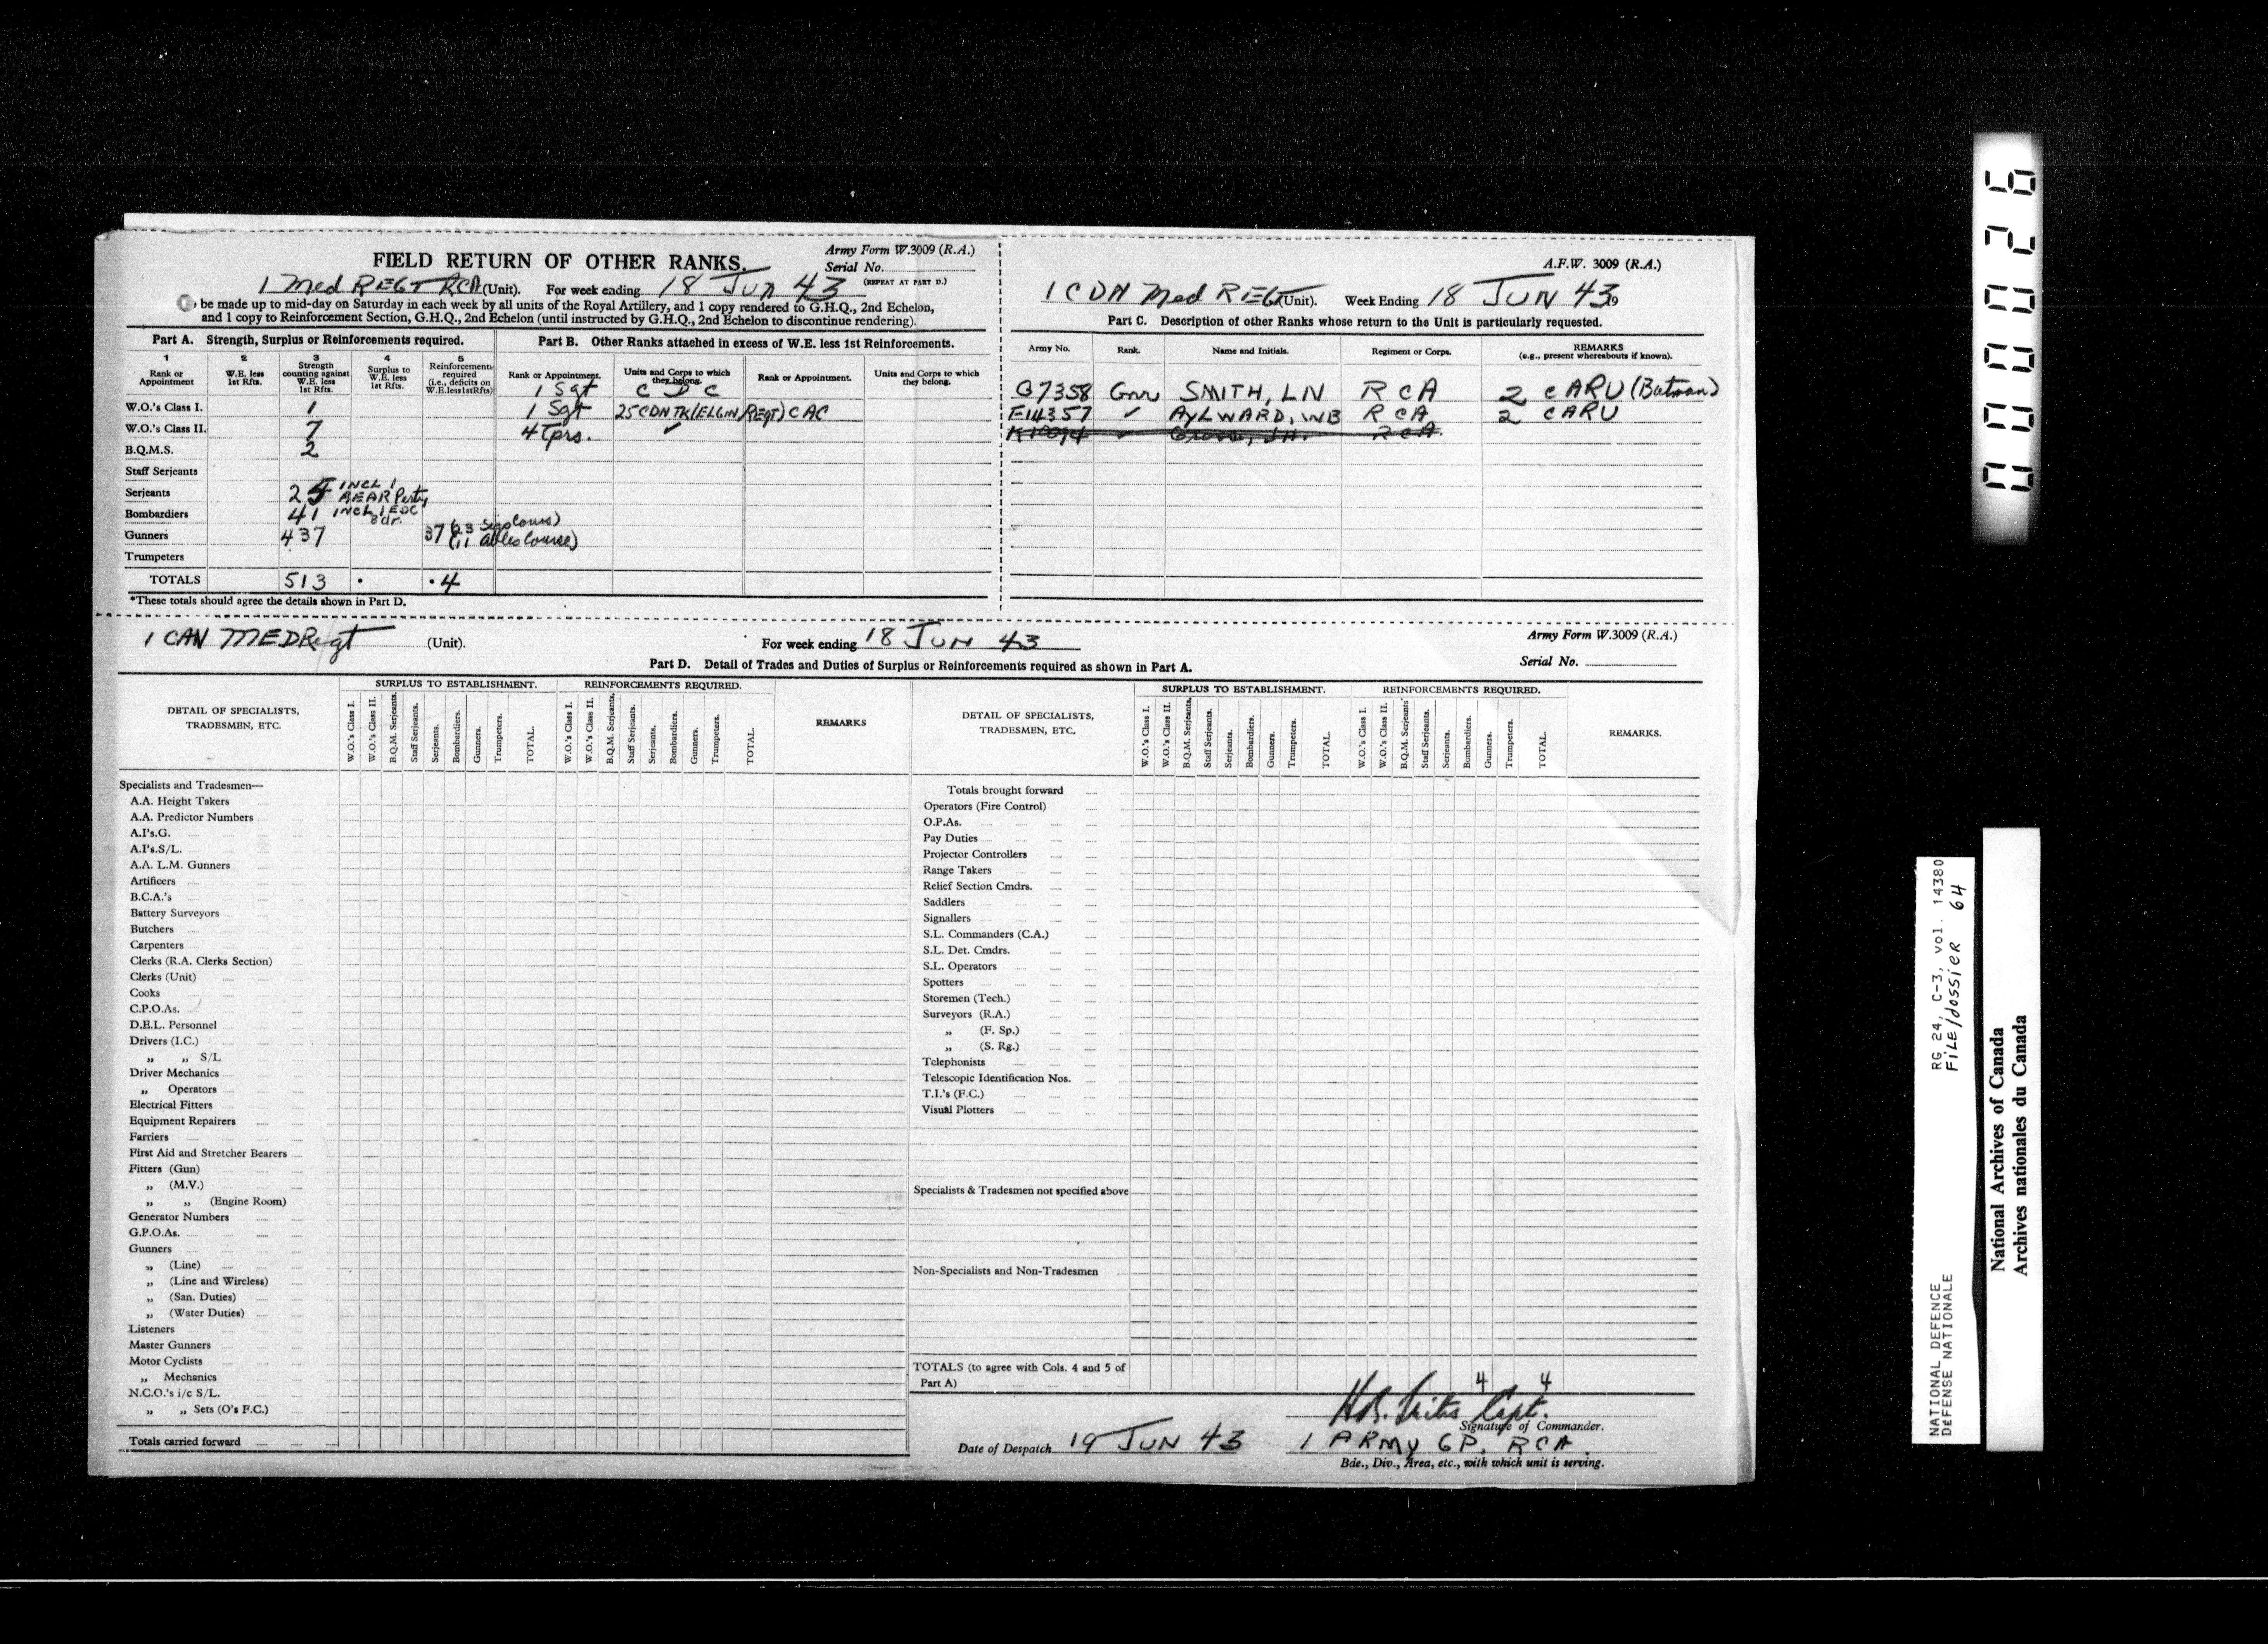 FIELD RETURN OF OTHER RANKS.
Army Form W.3009 (R.A.)
Serial No.
(REPEAT AT PART D.)
1 Med REGT RCA (Unit). For week ending 18 JUN 43
be made up to mid-day on Saturday in each week by all units of the Royal Artillery, and 1 copy rendered to G.H.Q., 2nd Echelon,
and 1 copy to Reinforcement Section, G.H.Q., 2nd Echelon (until instructed by G.H.Q., 2nd Echelon to discontinue rendering).
Part A. Strength, Surplus or Reinforcements required.
1 Rank or Appointment
2 W.E. less 1st Rfts.
3 Strength counting against W.E. less 1st Rfts.
4 Surplus to W.E. less 1st Rfts.
5 Reinforcements required (i.e., deficits on W.E. less 1st Rfts)
W.O.'s Class I. 1
W.O.'s Class II. 7
B.Q.M.S. 2
Staff Serjeants
Serjeants 25 INCL 1 REAR Party
Bombardiers 41 INCL 1 EDC Bdr.
Gunners 437 37
Trumpeters
TOTALS 513 • •4
*These totals should agree the details shown in Part D.
Part B. Other Ranks attached in excess of W.E. less 1st Reinforcements.
Rank or Appointment. Units and Corps to which they belong. Rank or Appointment. Units and Corps to which they belong.
1 Sgt C D C
1 Sgt 25 CDN TK (ELGIN REGT) CAC
4 Tprs. ✓
A.F.W. 3009 (R.A.)
1 CDN Med REGT (Unit). Week Ending 18 JUN 43 19
Part C. Description of other Ranks whose return to the Unit is particularly requested.
Army No. Rank. Name and Initials. Regiment or Corps. REMARKS (e.g., present whereabouts if known).
G7358 Gnr SMITH, LN RCA 2 CARU (Batman)
F14357 ✓ AYLWARD, WB RCA 2 CARU
RCA
1 CAN MED Regt (Unit). For week ending 18 JUN 43
Army Form W.3009 (R.A.)
Serial No.
Part D. Detail of Trades and Duties of Surplus or Reinforcements required as shown in Part A.
DETAIL OF SPECIALISTS, TRADESMEN, ETC.
SURPLUS TO ESTABLISHMENT.
W.O.'s Class I. W.O.'s Class II. B.Q.M. Serjeants. Staff Serjeants. Serjeants. Bombardiers. Gunners. Trumpeters. TOTAL.
REINFORCEMENTS REQUIRED.
W.O.'s Class I. W.O.'s Class II. B.Q.M. Serjeants. Staff Serjeants. Serjeants. Bombardiers. Gunners. Trumpeters. TOTAL.
REMARKS
Specialists and Tradesmen—
A.A. Height Takers
A.A. Predictor Numbers
A.I's.G.
A.I's.S/L.
A.A. L.M. Gunners
Artificers
B.C.A.'s
Battery Surveyors
Butchers
Carpenters
Clerks (R.A. Clerks Section)
Clerks (Unit)
Cooks
C.P.O.As.
D.E.L. Personnel
Drivers (I.C.)
„ „ S/L
Driver Mechanics
„ Operators
Electrical Fitters
Equipment Repairers
Farriers
First Aid and Stretcher Bearers
Fitters (Gun)
„ (M.V.)
„ „ (Engine Room)
Generator Numbers
G.P.O.As.
Gunners
„ (Line)
„ (Line and Wireless)
„ (San. Duties)
„ (Water Duties)
Listeners
Master Gunners
Motor Cyclists
„ Mechanics
N.C.O.'s i/c S/L.
„ „ Sets (O's F.C.)
Totals carried forward
DETAIL OF SPECIALISTS, TRADESMEN, ETC.
SURPLUS TO ESTABLISHMENT.
W.O.'s Class I. W.O.'s Class II. B.Q.M. Serjeants. Staff Serjeants. Serjeants. Bombardiers. Gunners. Trumpeters. TOTAL.
REINFORCEMENTS REQUIRED.
W.O.'s Class I. W.O.'s Class II. B.Q.M. Serjeants Staff Serjeants. Serjeants. Bombardiers. Gunners. Trumpeters. TOTAL.
REMARKS.
Totals brought forward
Operators (Fire Control)
O.P.As.
Pay Duties
Projector Controllers
Range Takers
Relief Section Cmdrs.
Saddlers
Signallers
S.L. Commanders (C.A.)
S.L. Det. Cmdrs.
S.L. Operators
Spotters
Storemen (Tech.)
Surveyors (R.A.)
„ (F. Sp.)
„ (S. Rg.)
Telephonists
Telescopic Identification Nos.
T.I.'s (F.C.)
Visual Plotters
Specialists & Tradesmen not specified above
Non-Specialists and Non-Tradesmen
TOTALS (to agree with Cols. 4 and 5 of Part A) 4 4
Capt.
Signature of Commander.
Date of Despatch 19 JUN 43 1 ARMY GP. RCA.
Bde., Div., Area, etc., with which unit is serving.
000026
NATIONAL DEFENCE RG 24, C-3, vol. 14380
DEFENSE NATIONALE FILE/dossier 64
National Archives of Canada
Archives nationales du Canada